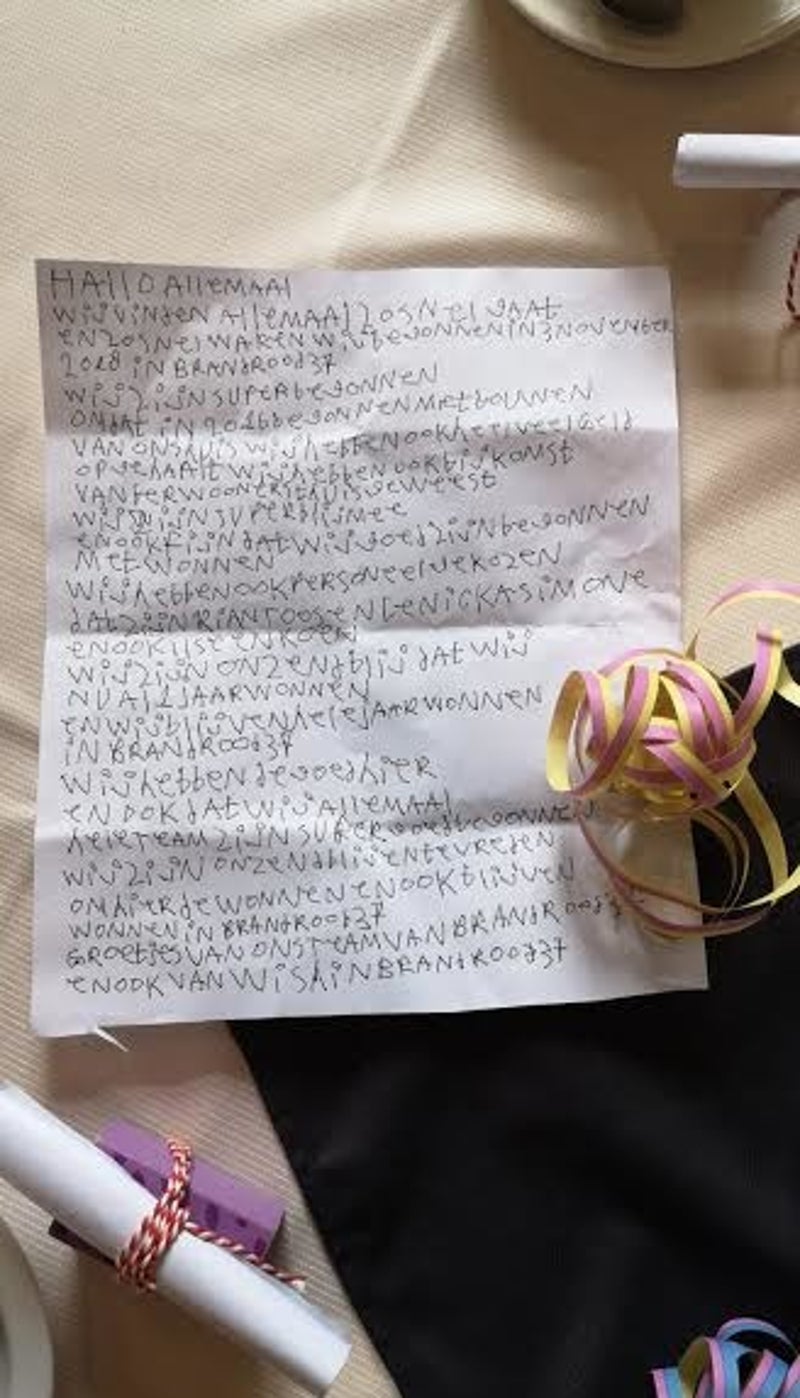 HAllO AllEMAAl
WIJ VINDEN AllEMAAl ZO SNEL GAAT
EN ZO SNEL WAREN WIJ BEGONNEN IN 3 NOVEMBER
2018 IN BRANDROOD 37
WIJ ZIJN SUPER BEGONNEN
OMDAT IN 2018 BEGONNEN MET BOUWEN
VAN ONS HUIS WIJ HEBBEN OOK HEEL VEEL GELD
OPGEHAALT WIJ HEBBEN OOK BIJKOMST
VAN FERWOONERIJ THUIS GEWEEST
WIJ ZIJN SUPER BLIJ MEE
EN OOK FIJN DAT WIJ GOED ZIJN BEGONNEN
MET WONNEN
WIJ HEBBEN OOK PERSONEEL GEKOZEN
DAT ZIJN RIAN TOOS EN LENIC KA SIMONE
EN OOK ILSE EN KOEN
WIJ ZIJN ONZEND BLIJ DAT WIJ
NU Al 1 JAAR WONNEN
EN WIJ BLIJVEN HELE JAAR WONNEN
IN BRANDROOD 37
WIJ HEBBEN DE GOED HIER
EN OOK DAT WIJ AllEMAAl
HELE TEAM ZIJN SUPER GOED BEGONNEN
WIJ ZIJN ONZEND BLIJ EN TEVREDEN
OM HIER DE WONNEN EN OOK BLIJVEN
WONNEN IN BRANDROOD 37
GROETJES VAN ONS TEAM VAN BRANDROOD
EN OOK VAN WISH IN BRANDROOD 37